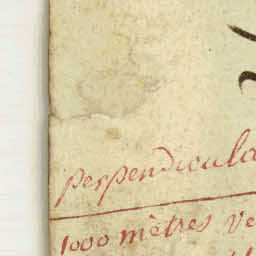 perpendicula
1000 mètres ve